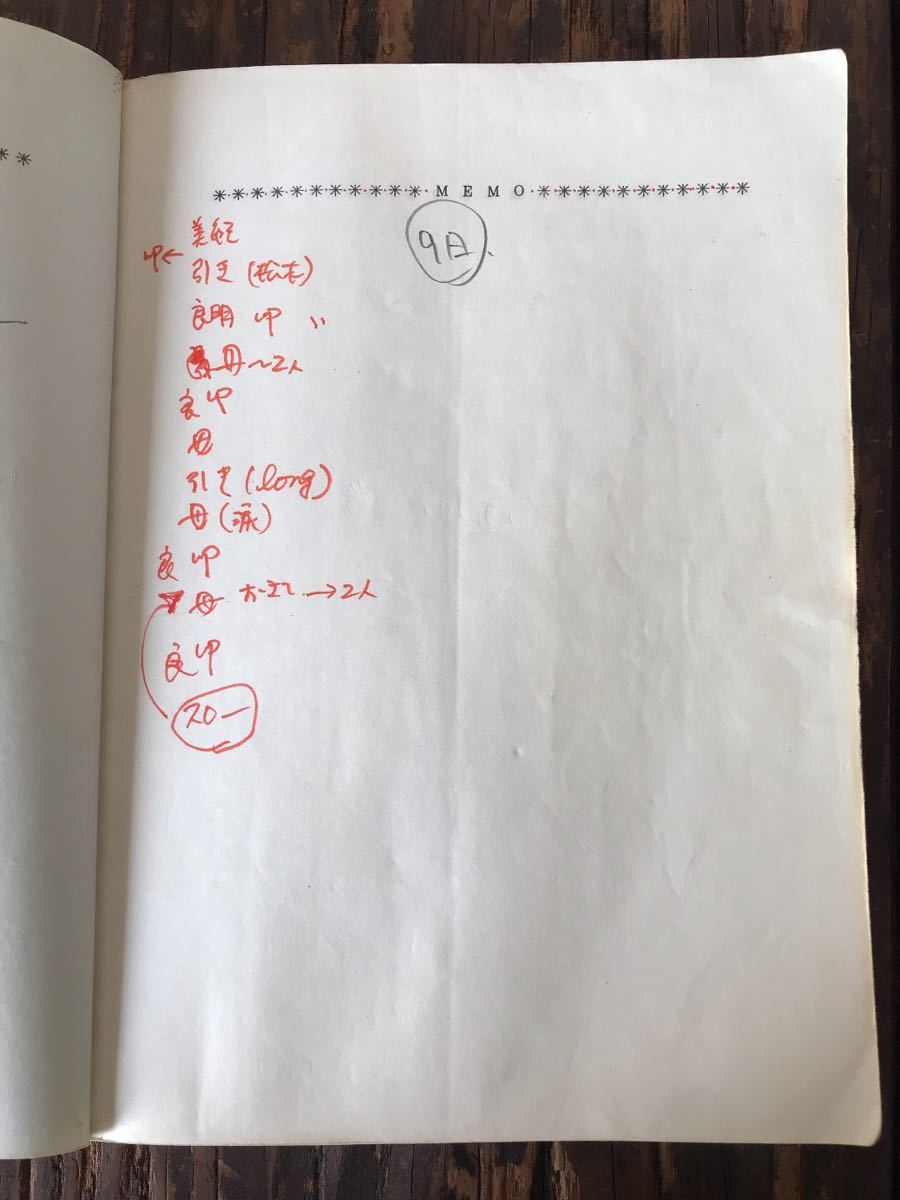 **
************MEMO************
9日
美紀
UP← 引き(松本)
良明 UP 〃
母〜2人
良UP
母
引き(long)
母(涙)
良UP
母 →2人
良UP
スロー